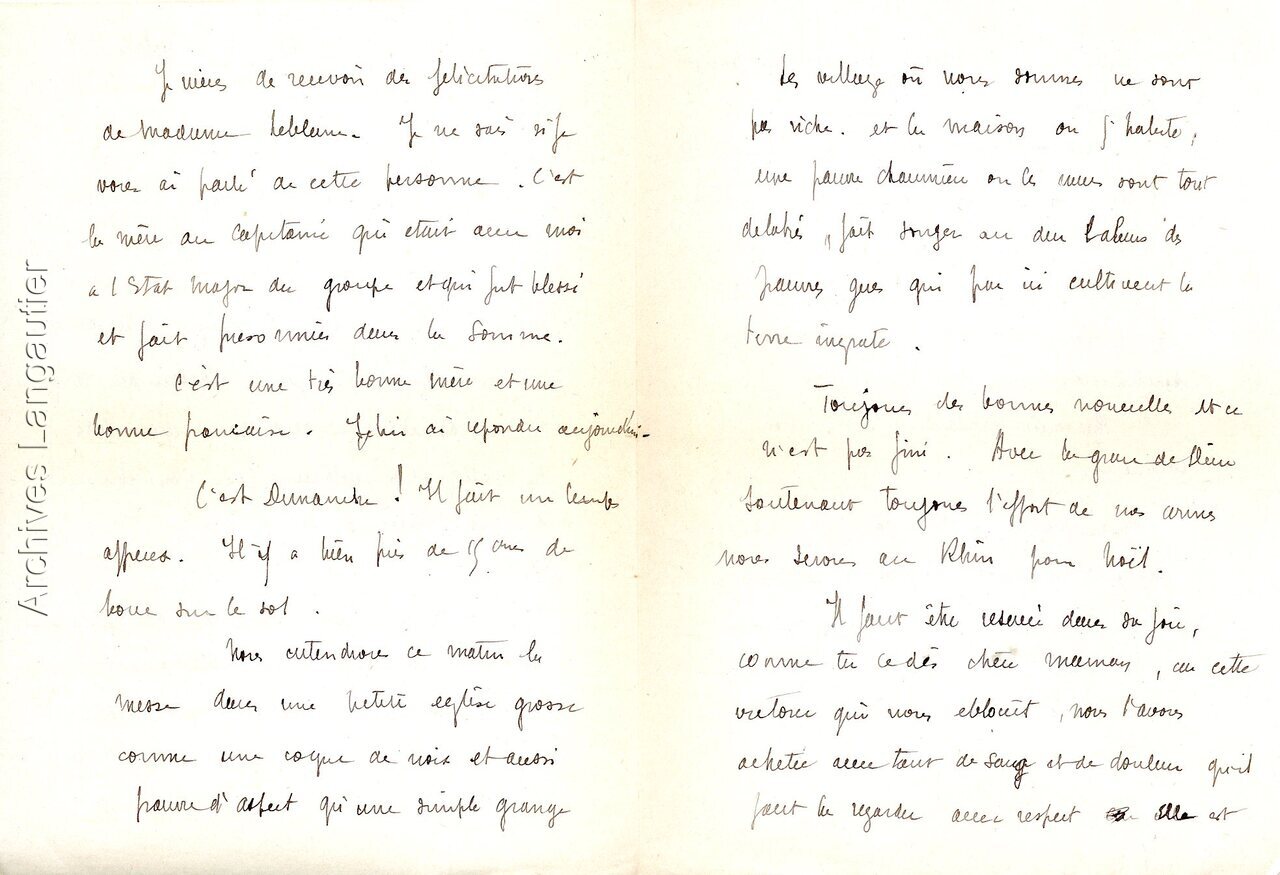 Je viens de recevoir des felicitations
de Madame Leblanc. Je ne sais si je
vous ai parlé de cette personne. C'est
la mère du Capitaine qui etait avec moi
a l Etat Major du groupe et qui fut blessé
et fait prisonnier dans la Somme.
C'est une très bonne mère et une
bonne française. Je lui ai repondu aujourd'hui-
C'est Dimanche ! Il fait un temps
affreux. Il y a bien près de 15 cmes de
boue sur le sol.
Nous entendrons ce matin la
messe dans une petite eglise grosse
comme une coque de noix et aussi
pauvre d'aspect qu'une simple grange
Les village où nous sommes ne sont
pas riche. et la maison ou j'habite,
une pauvre chaumière ou les murs sont tout
delabrés, fait songer au dur labeur des
pauvres gens qui par ici cultivent la
terre ingrate.
Toujours des bonnes nouvelles et ce
n'est pas fini. Avec la grace de Dieu
soutenant toujours l'effort de nos armes
nous serons au Rhin pour Noël.
Il faut être reservé dans sa joie,
comme tu le dis chère maman, car cette
victoire qui nous eblouit, nous l'avons
achetée avec tant de sang et de douleur qu'il
faut la regarder avec respect elle est
Archives Langautier